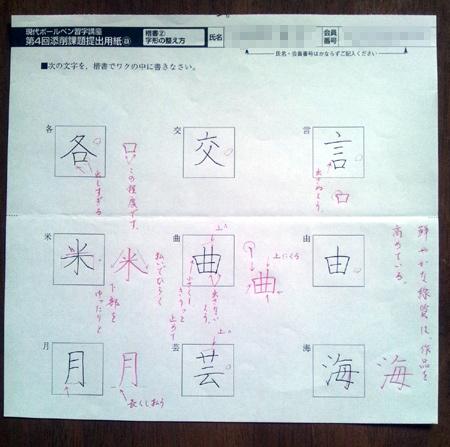 現代ボールペン習字講座
第4回添削課題提出用紙
楷書②
字形の整え方
氏名
会員
番号
氏名・会員番号はかならずご記入ください
■次の文字を、楷書でワクの中に書きなさい。
言
言
交
交
各
各
この程度です。
出しすぎる
鮮やかな線質は作品を
高めている。
由
由
曲
曲
曲
上にくる
米
米
米
払いでひらく
下部を
ゆったりと
海
海
海
芸
芸
月
月
月
長くし払う